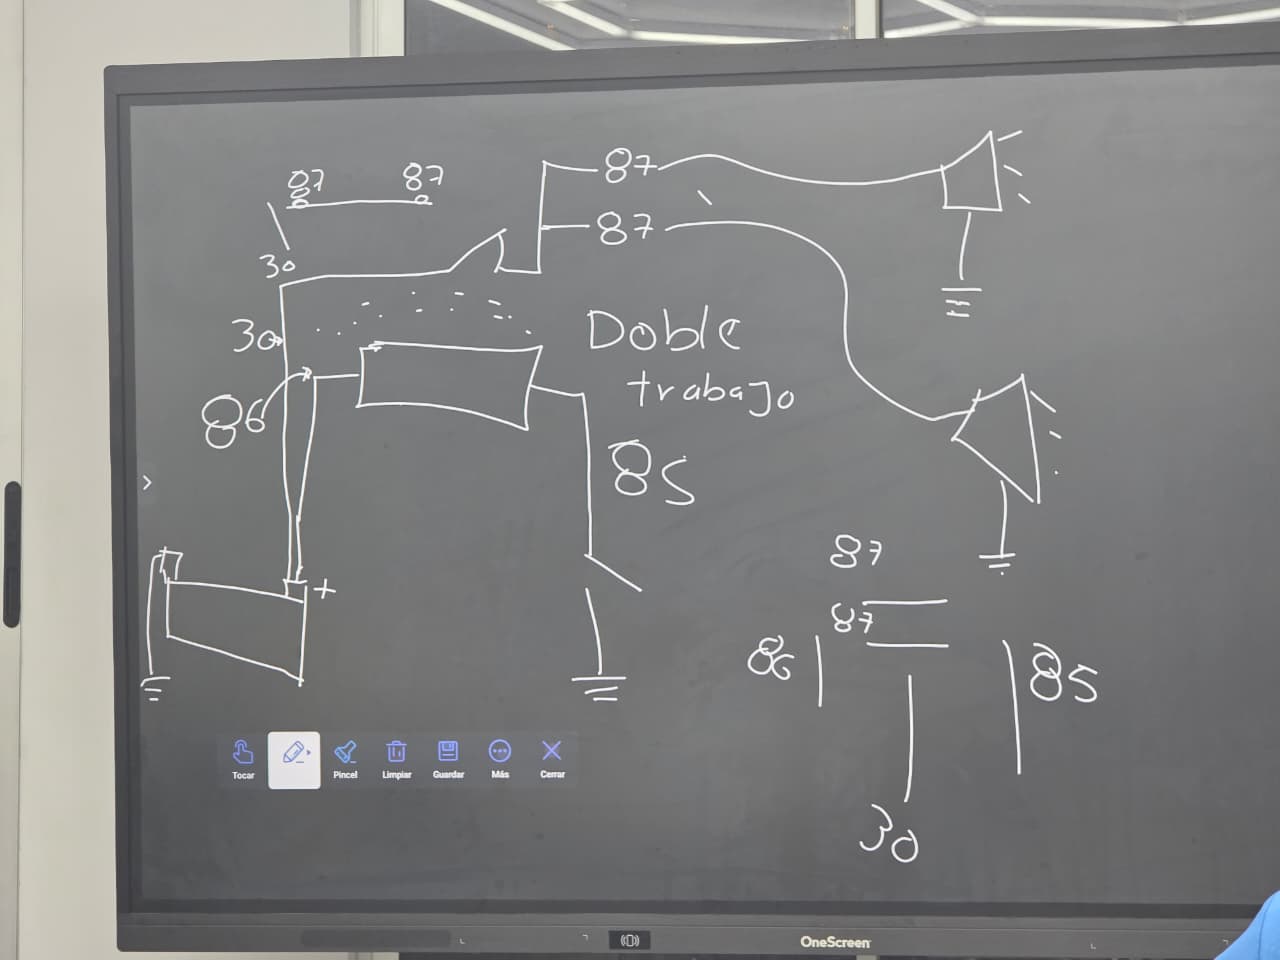 87 87
30
87
87
30
Doble
trabajo
86
85
+
87
87
86
85
30
Tocar
Pincel
Limpiar
Guardar
Más
Cerrar
OneScreen